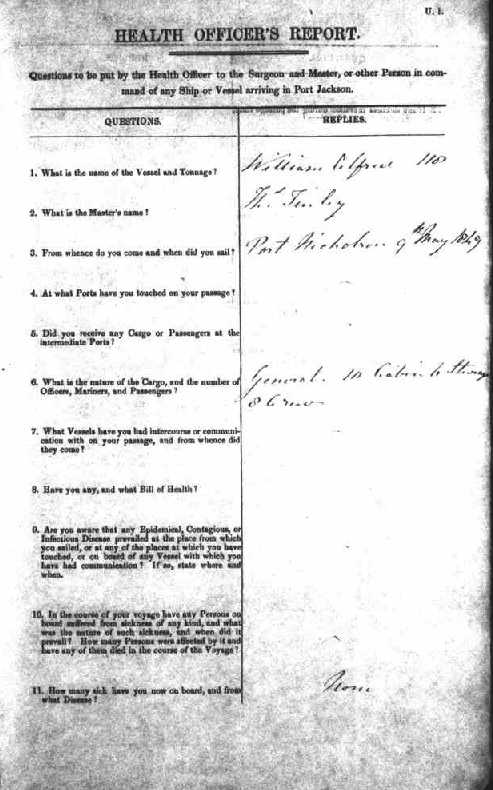 U. 1.
HEALTH OFFICER'S REPORT.
Questions to be put by the Health Officer to the Surgeon and Master, or other Person in com-
mand of any Ship or Vessel arriving in Port Jackson.
QUESTIONS.
REPLIES.
1. What is the name of the Vessel and Tonnage?
William Alfred 118
2. What is the Master's name?
Thos. Tinley
3. From whence do you come and when did you sail?
Port Nicholson 9th May 1849
4. At what Ports have you touched on your passage?
5. Did you receive any Cargo or Passengers at the
intermediate Ports?
6. What is the nature of the Cargo, and the number of
Officers, Mariners, and Passengers?
General. 10 Cabin 6 Steerage
8 Crew
7. What Vessels have you had intercourse or communi-
cation with on your passage, and from whence did
they come?
8. Have you any, and what Bill of Health?
9. Are you aware that any Epidemical, Contagious, or
Infectious Disease prevailed at the place from which
you sailed, or at any of the places at which you have
touched, or on board of any Vessel with which you
have had communication? If so, state where and
when.
10. In the course of your voyage have any Persons on
board suffered from sickness of any kind, and what
was the nature of such sickness, and when did it
prevail? How many Persons were affected by it and
have any of them died in the course of the Voyage?
11. How many sick have you now on board, and from
what Disease?
None